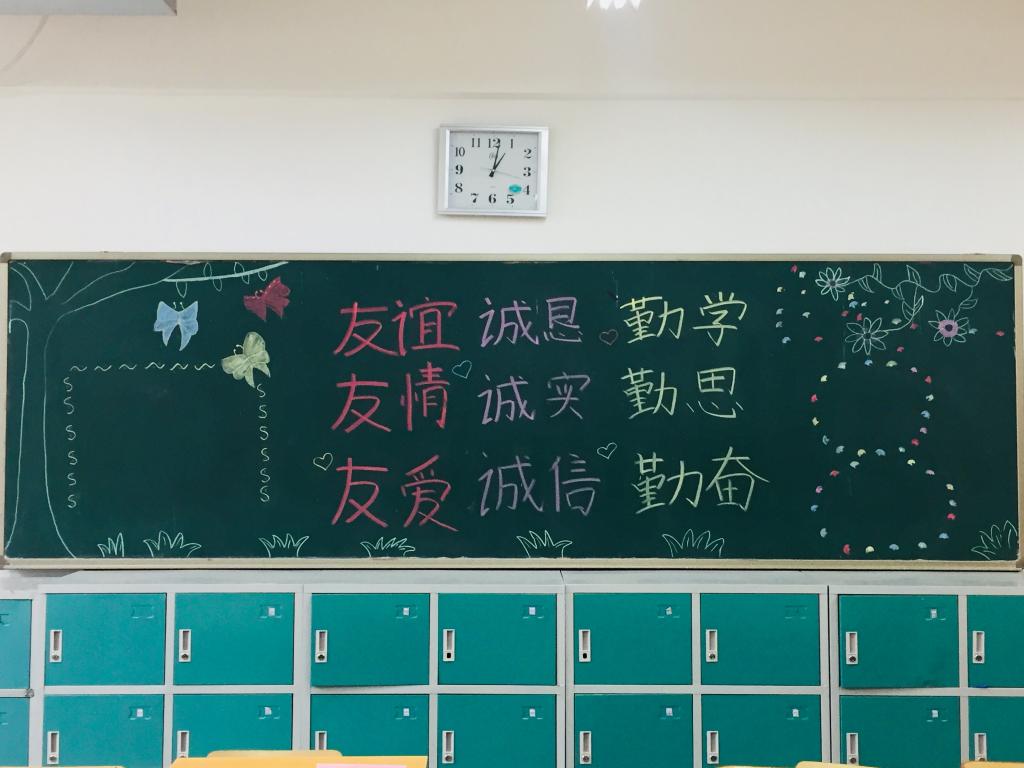 11 12 1
10 2
9 3
8 4
7 6 5
友谊 诚恳 勤学
友情 诚实 勤思
友爱 诚信 勤奋